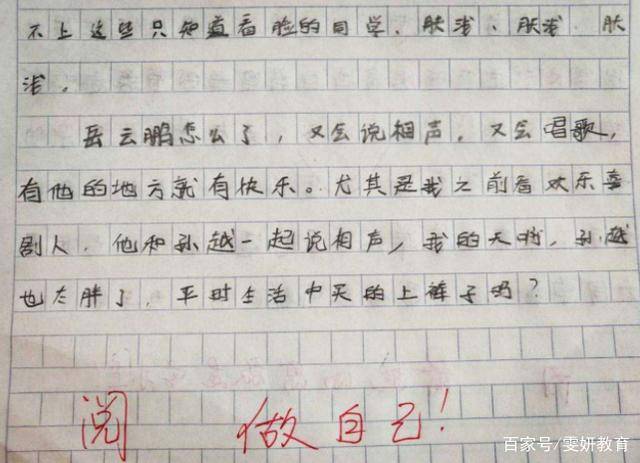 不上这些只知道看脸的同学，肤浅、肤浅、肤
浅。
岳云鹏怎么了，又会说相声，又会唱歌，
有他的地方就有快乐。尤其是我之前看欢乐喜
剧人，他和孙越一起说相声，我的天啊，孙越
也太胖了，平时生活中买的上裤子吗？
阅 做自己！
百家号/雯妍教育